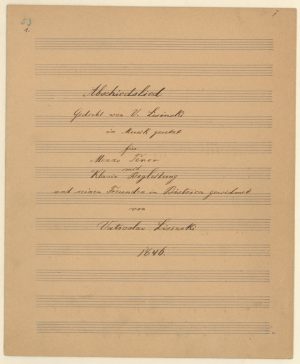 53
1.
1
Abschiedslied
Gedicht von V. Lisinski
in Musik gesetzt
für
Mezzo Tenor
mit
Klavier Begleitung
und seinen Freunden in gewidmet
von
Vatroslav Lisinski
1846.